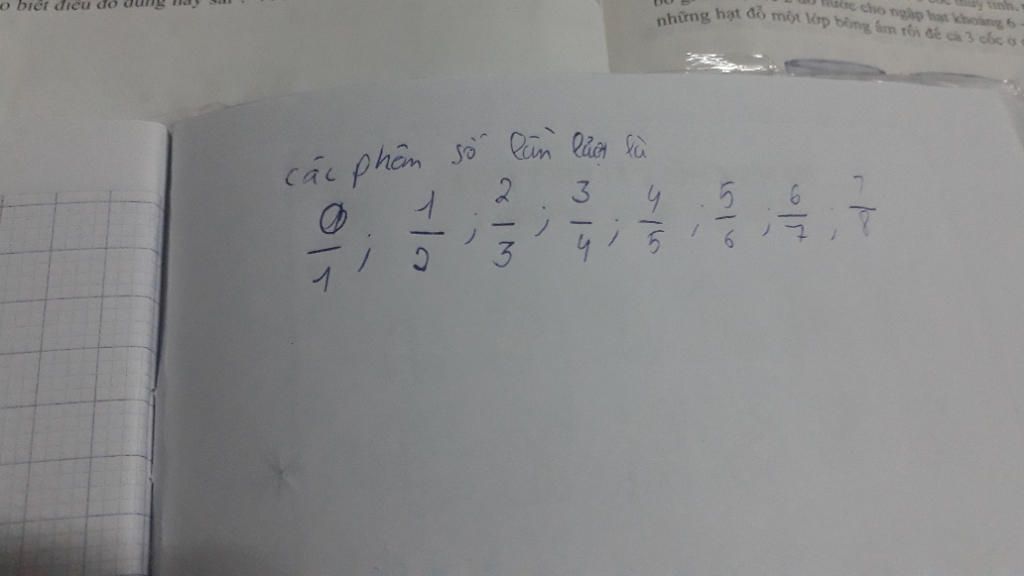 o biết điều đó đúng hay sai
nước cho ngập hạt khoảng 6 -
những hạt đỗ một lớp bông ẩm rồi để cả 3 cốc ở
các phân số lần lượt là
0/1 ; 1/2 ; 2/3 ; 3/4 ; 4/5 ; 5/6 ; 6/7 ; 7/8